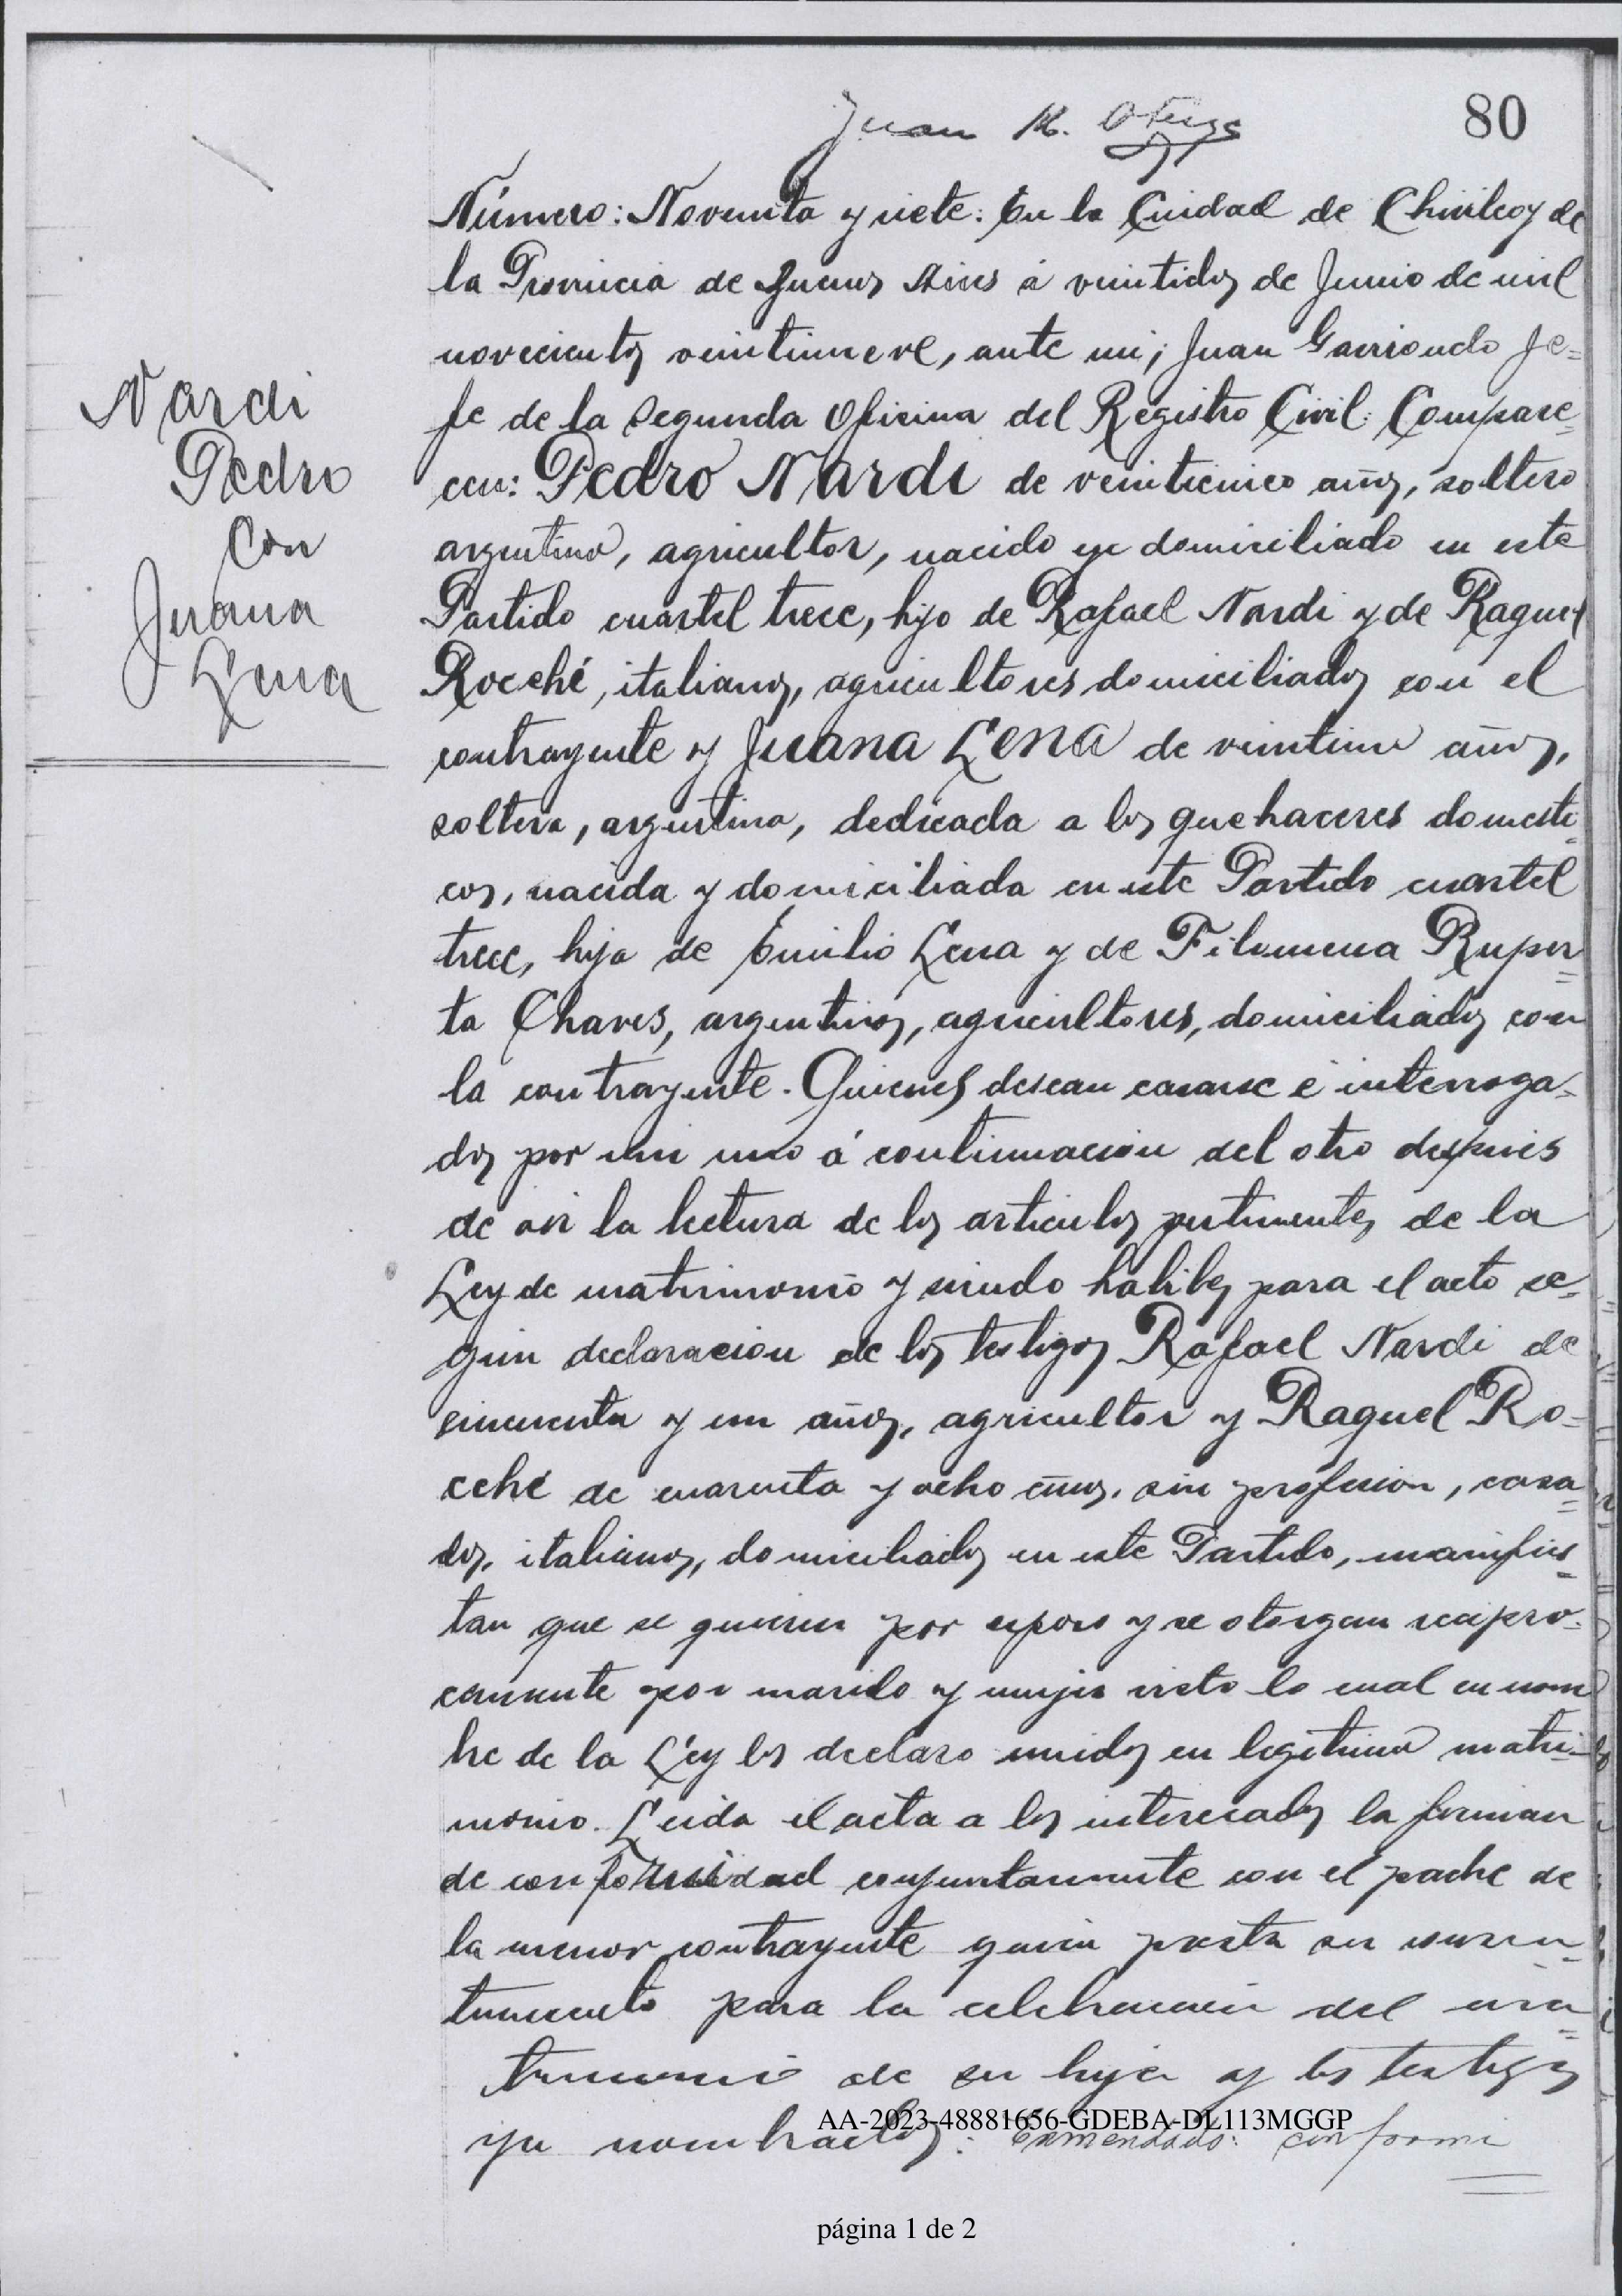 Juan M.
80
Nardi
Pedro
con
Juana
Lena
Número: Noventa y siete: En la Ciudad de Chivilcoy de
la Provincia de Buenos Aires á veintidos de Junio de mil
novecientos veintinueve, ante mi; Juan Garriondo Je=
fe de la Segunda Oficina del Registro Civil: Compare=
cen: Pedro Nardi de veinticinco años, soltero
argentino, agricultor, nacido y domiciliado en este
Partido cuartel trece, hijo de Rafael Nardi y de Raquel
Rocché, italianos, agricultores domiciliados con el
contrayente y Juana Lena de veintiun años,
soltera, argentina, dedicada a los quehaceres domesti=
cos, nacida y domiciliada en este Partido cuartel
trece, hija de Emilio Lena y de Filomena Ruper=
ta Chaves, argentinos, agricultores, domiciliados con
la contrayente. Quienes desean casarse é interroga=
dos por mi uno á continuacion del otro despues
de oir la lectura de los articulos pertinentes de la
Ley de matrimonio y siendo habiles para el acto se=
gun declaracion de los testigos Rafael Nardi de
cincuenta y un años, agricultor y Raquel Ro=
cché de cuarenta y ocho años, sin profesion, casa=
dos, italianos, domiciliados en este Partido, manifies=
tan que se quieren por esposos y se otorgan recipro=
camente por marido y mujer visto lo cual en nom
bre de la Ley los declaro unidos en legitimo matri=
monio. Leida el acta a los interesados la firman
de conformidad conjuntamente con el padre de
la menor contrayente quien presta su consen=
timiento para la celebracion del ma=
trimonio de su hija y los testigos
ya nombrados: Enmendado: conformi
AA-2023-48881656-GDEBA-DL113MGGP
página 1 de 2